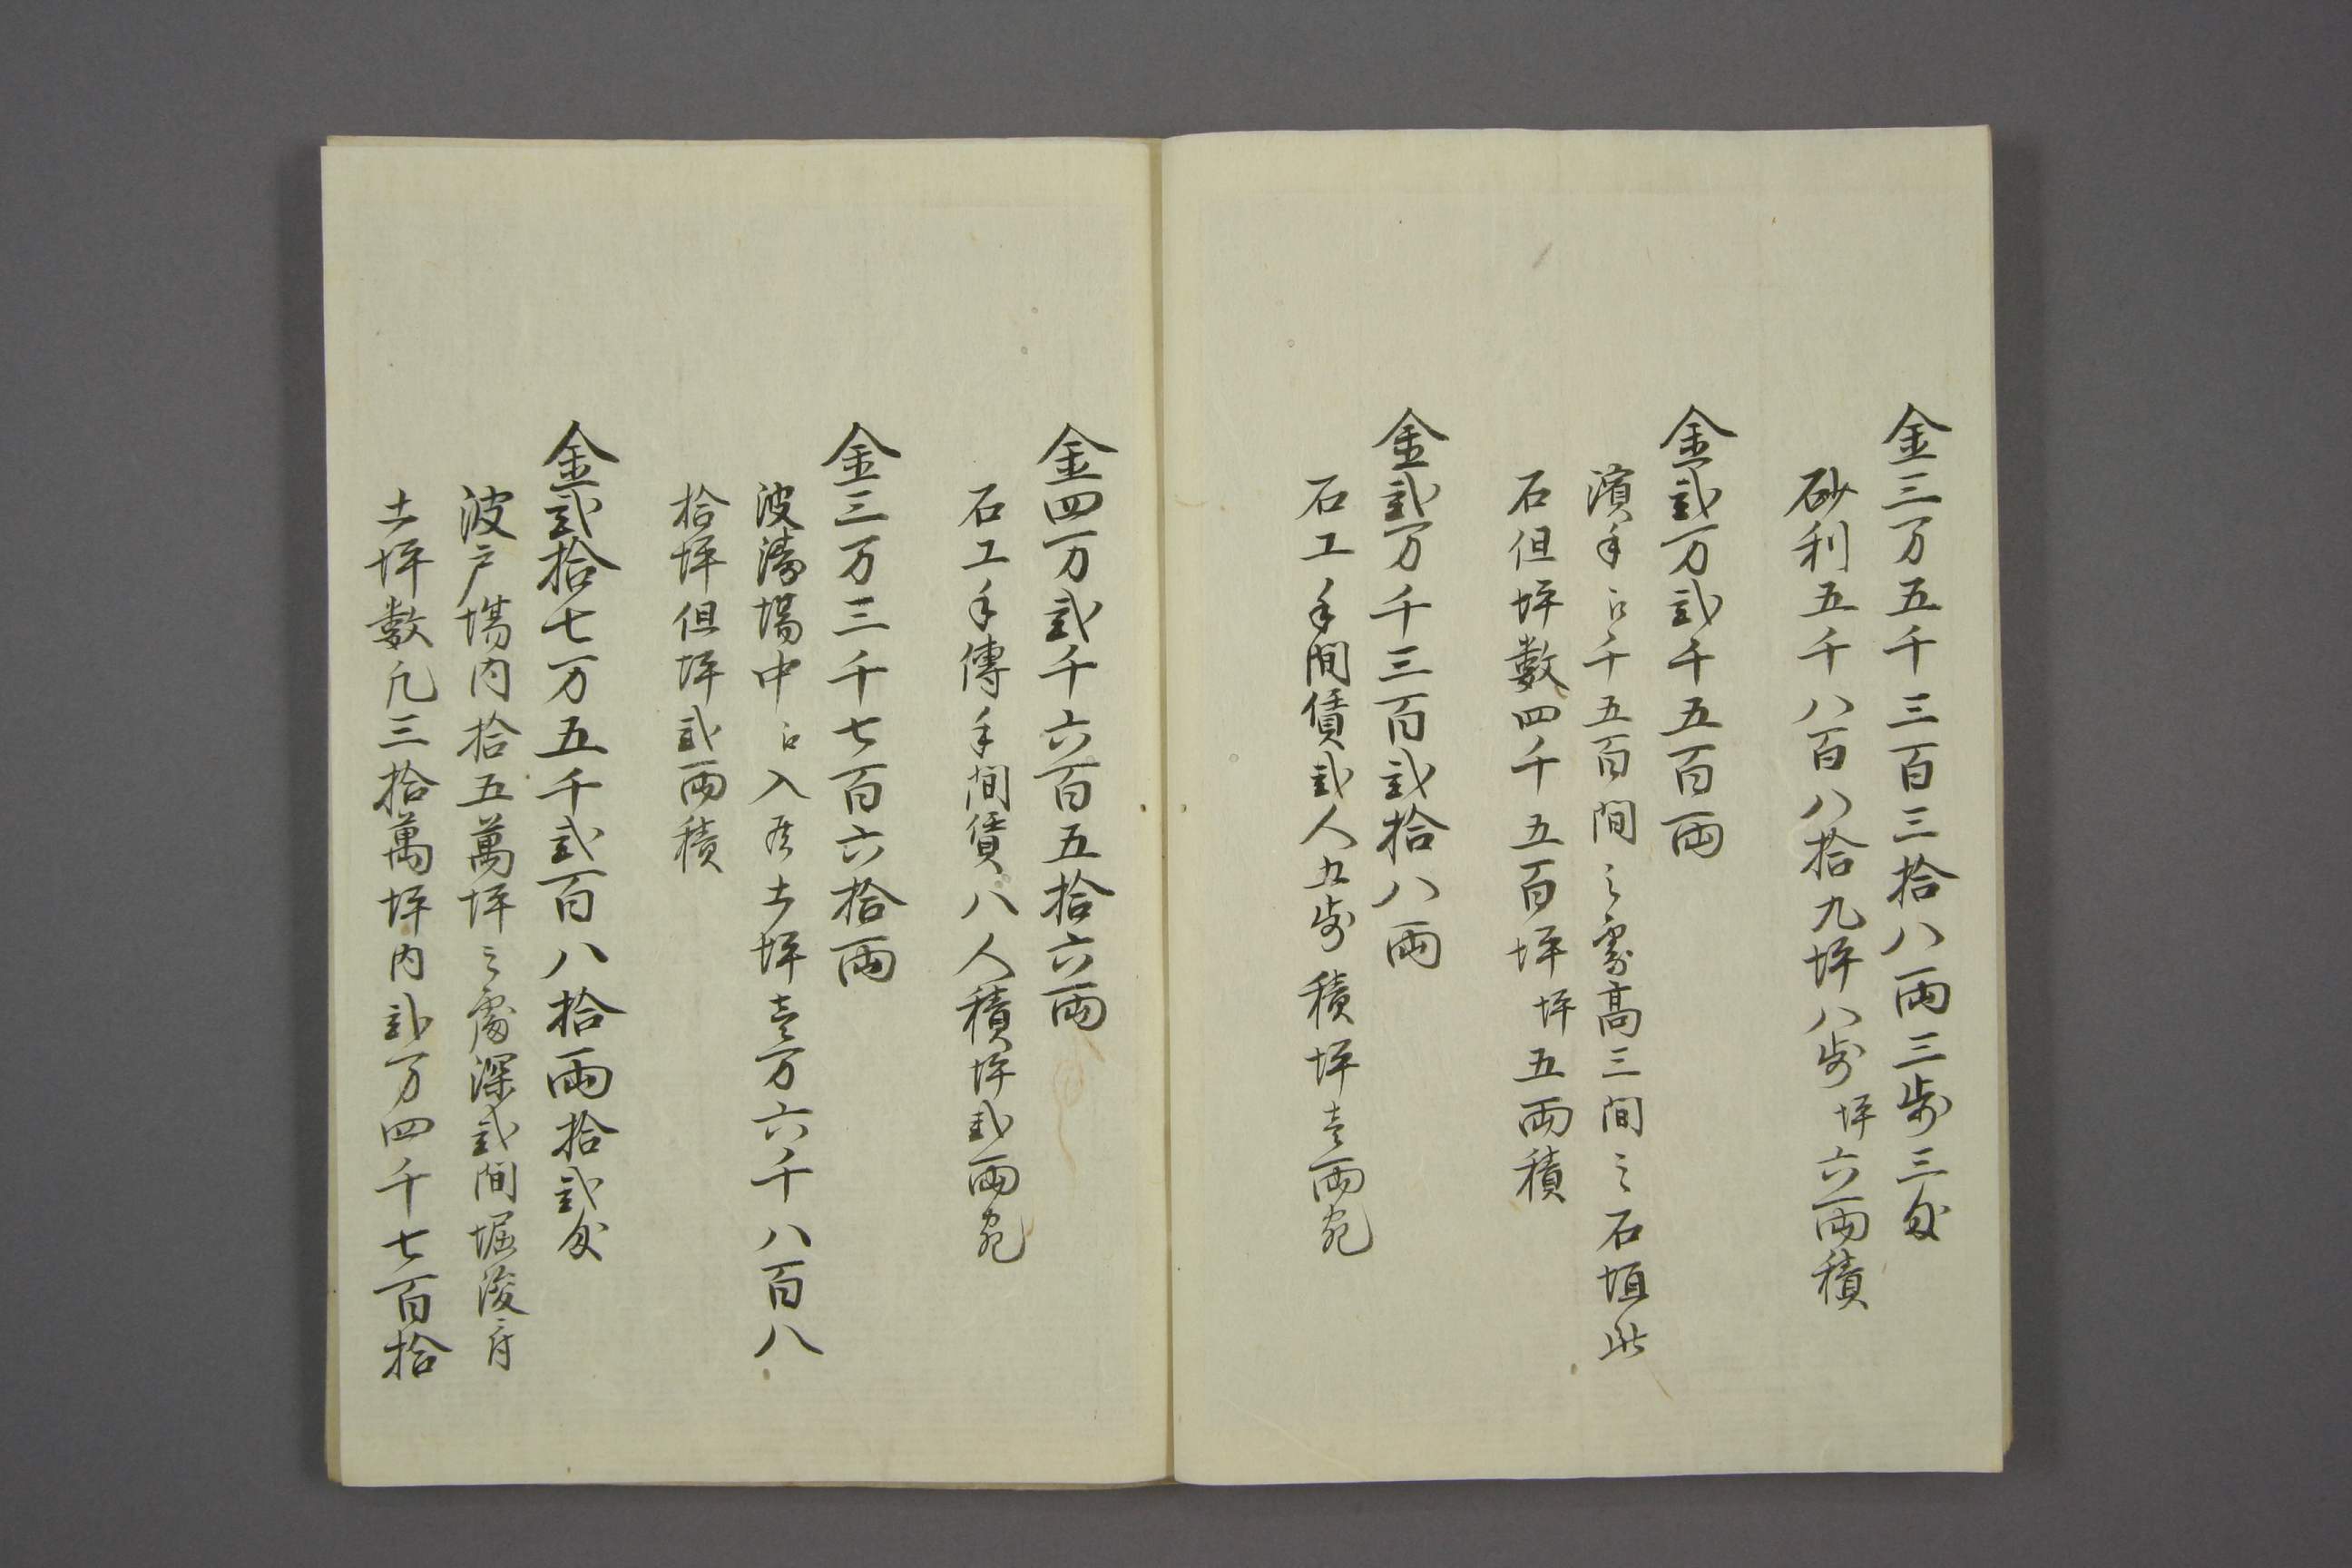 金三万五千三百三拾八両三歩三匁
砂利五千八百八拾九坪八歩坪六両積
金弐万弐千五百両
濱手ニ千五百間之處高三間之石垣此
石但坪數四千五百坪坪五両積
金弐万千三百弐拾八両
石工手間賃弐人五歩積坪壱両宛
金四万弐千六百五拾六両
石工手傳手間賃八人積坪弐両宛
金三万三千七百六拾両
波濤場中ニ入候土坪壱万六千八百八
拾坪但坪弐両積
金弐拾七万五千弐百八拾両拾弐匁
波戸場内拾五萬坪之處深弐間堀浚府
土坪數凡三拾萬坪内弐万四千七百拾